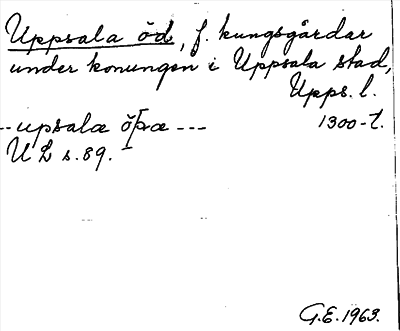 Uppsala öd, f. kungsgårdar
under konungen i Uppsala stad,
Upps. l.
--- upsalæ öþæ --- 1300-t.
U L s. 89.
G.E. 1963.